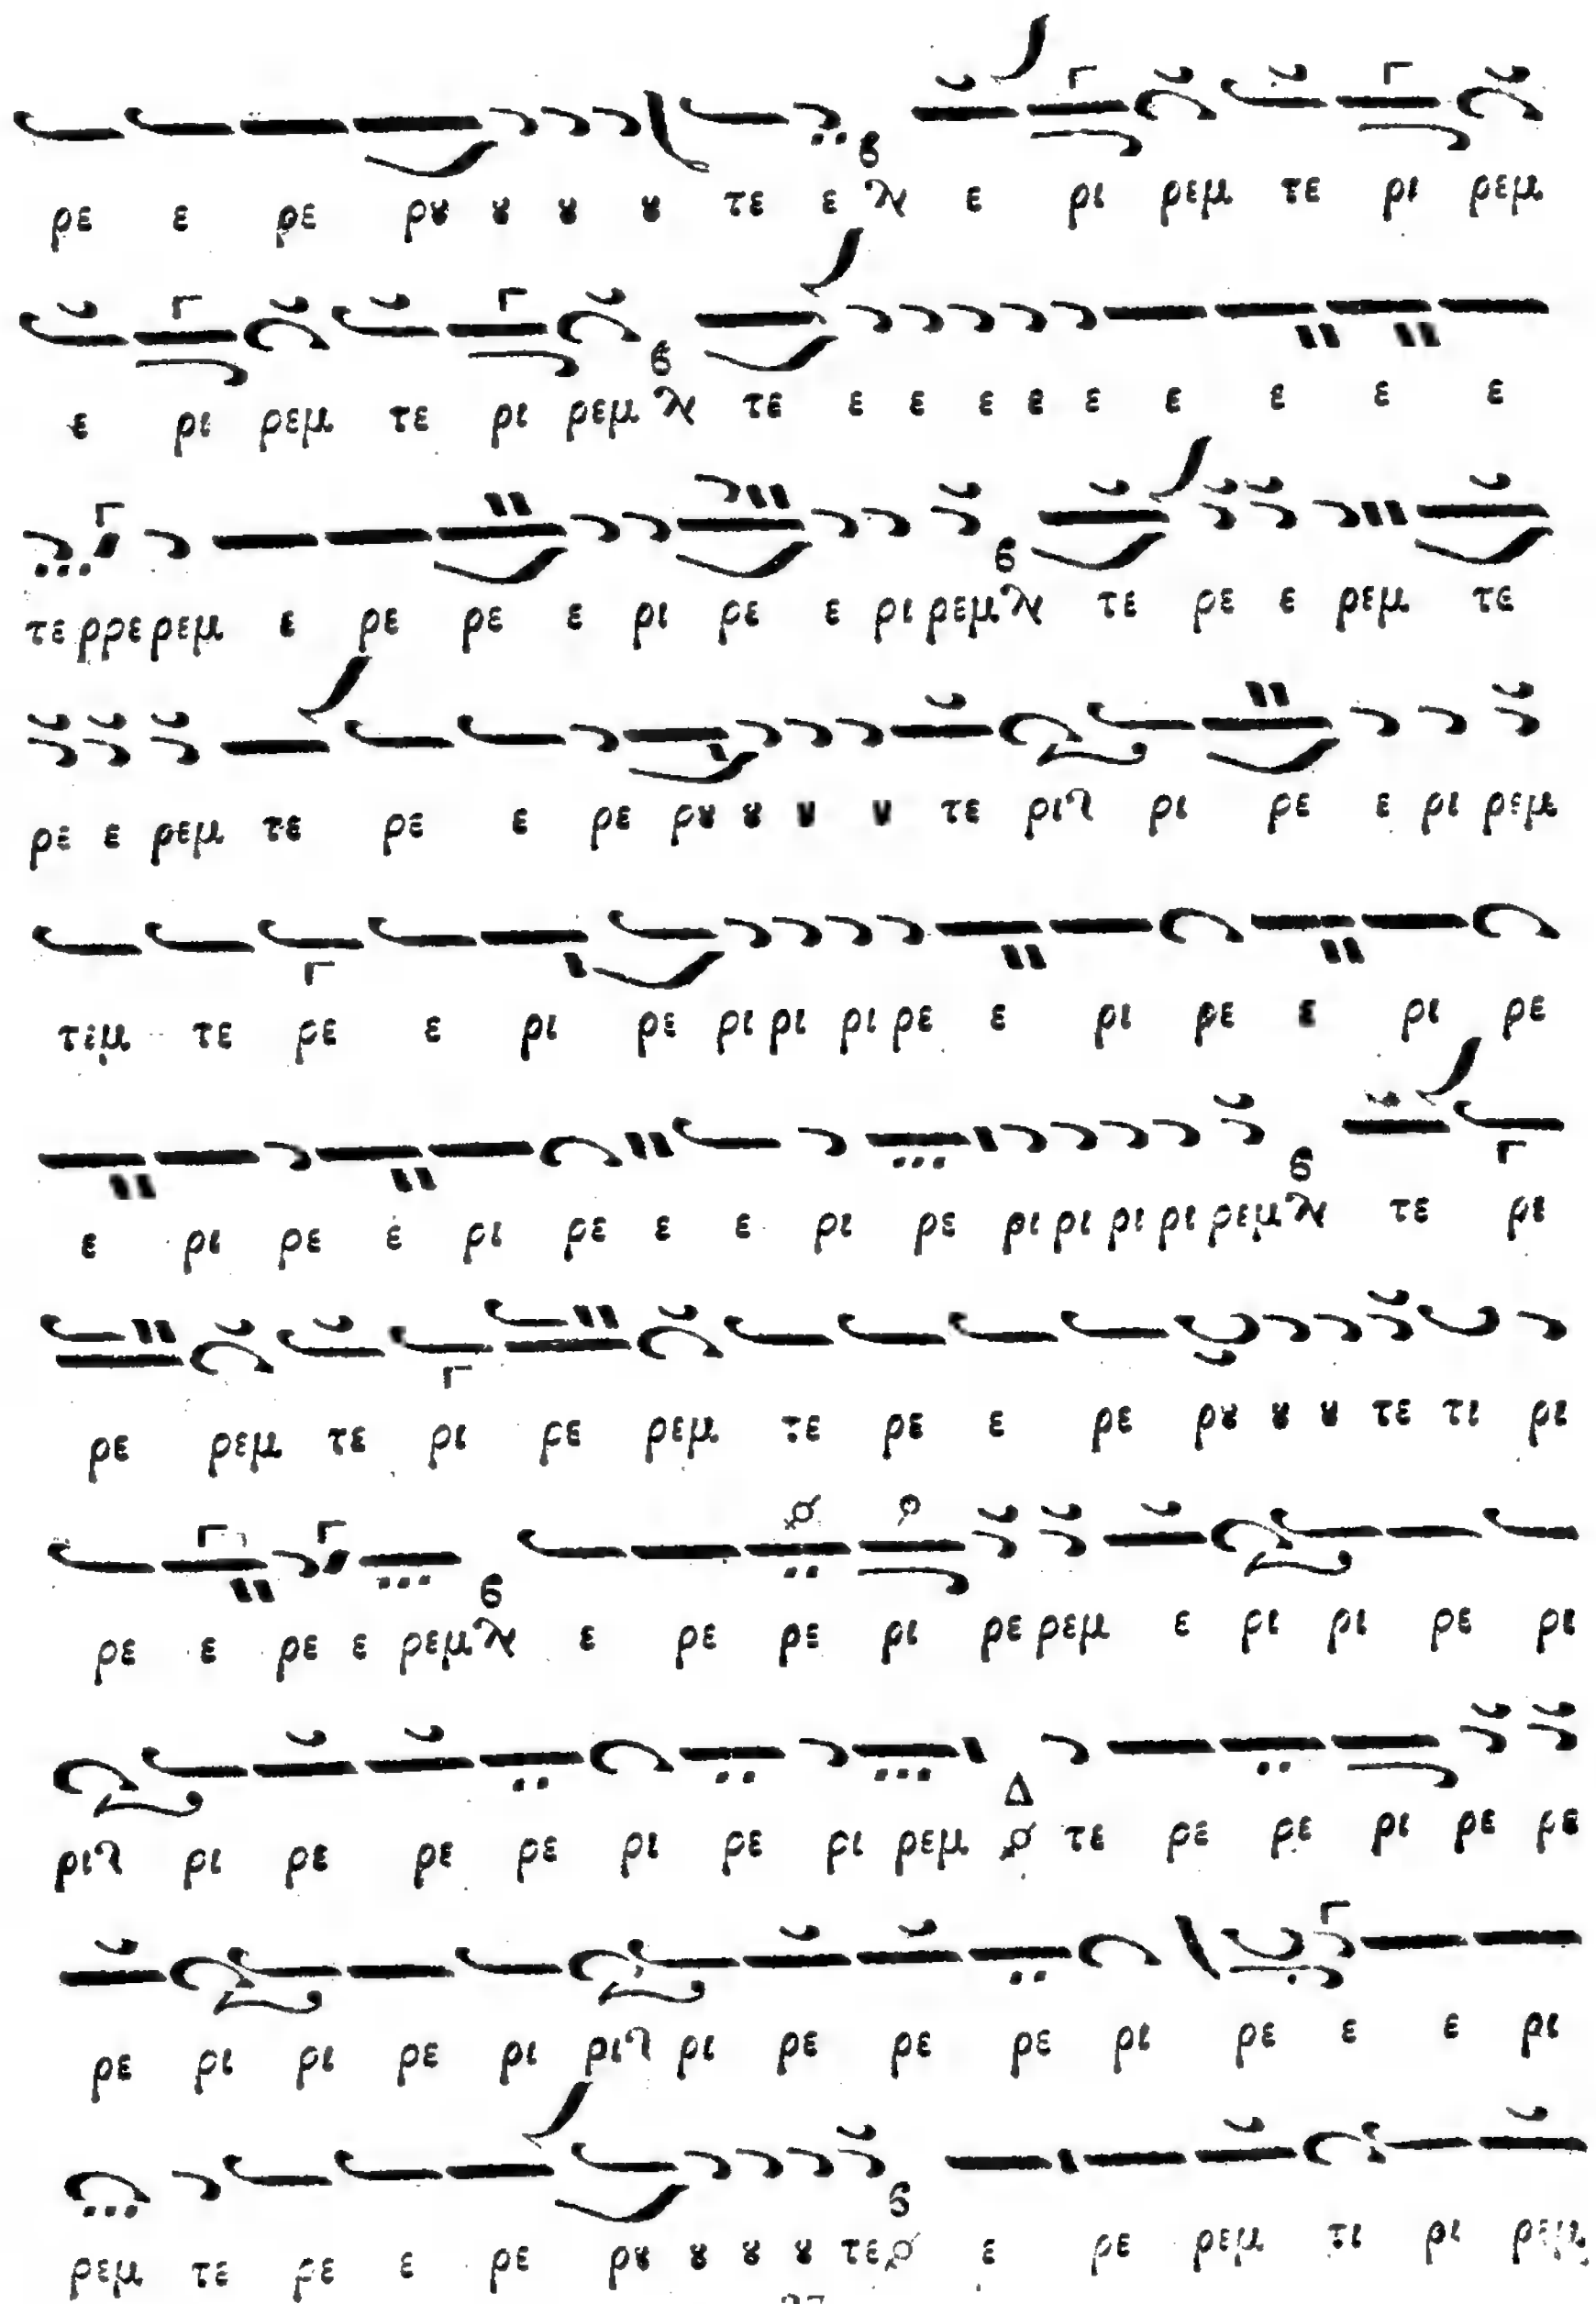 ρε ε ρε ρȣ ȣ ȣ ȣ τε ε ε ρι ρεμ τε ρι ρεμ
ε ρι ρεμ τε ρι ρεμ τε ε ε ε ε ε ε ε ε ε
τε ρρε ρεμ ε ρε ρε ε ρι ρε ε ρι ρεμ τε ρε ε ρεμ τε
ρε ε ρεμ τε ρε ε ρε ρȣ ȣ ȣ ȣ τε ρι ρι ρε ε ρι ρεμ
τεμ τε ρε ε ρι ρε ρι ρι ρι ρε ε ρι ρε ε ρι ρε
ε ρι ρε ε ρι ρε ε ε ρι ρε ρι ρι ρι ρι ρεμ τε ρι
ρε ρεμ τε ρι ρε ρεμ τε ρε ε ρε ρȣ ȣ ȣ τε τι ρι
ρε ε ρε ε ρεμ ε ρε ρε ρι ρε ρεμ ε ρι ρι ρε ρι
ρι ρι ρε ρε ρε ρι ρε ρι ρεμ Δ τε ρε ρε ρι ρε ρε
ρε ρι ρι ρε ρι ρι ρι ρε ρε ρε ρι ρε ε ε ρι
ρεμ τε ρε ε ρε ρȣ ȣ ȣ ȣ τε ε ρε ρεμ τι ρι ρεμ